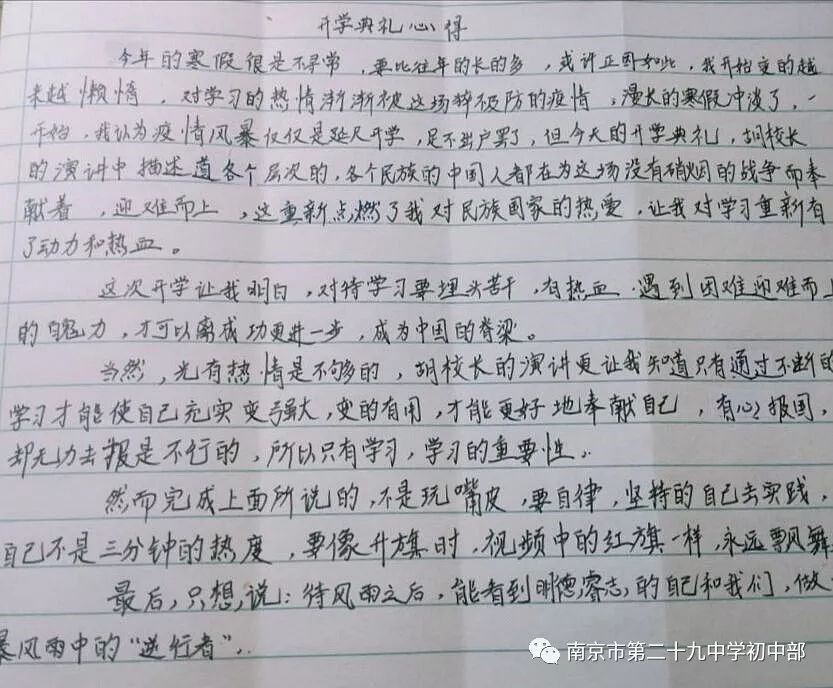 开学典礼心得
今年的寒假很是不寻常，要比往年的长的多，或许正因如此，我开始变的越
来越懒惰，对学习的热情渐渐被这场猝不及防的疫情，漫长的寒假冲淡了，一
开始，我认为疫情风暴仅仅是延尺开学，足不出户罢了，但今天的开学典礼，胡校长
的演讲中描述道各个层次的，各个民族的中国人都在为这场没有硝烟的战争而奉
献着，迎难而上，这重新点燃了我对民族国家的热爱，让我对学习重新有
了动力和热血。
这次开学让我明白，对待学习要埋头苦干，有热血，遇到困难迎难而上
的魄力，才可以离成功更进一步，成为中国的脊梁。
当然，光有热情是不够多的，胡校长的演讲更让我知道只有通过不断的
学习才能使自己充实变强大，变的有用，才能更好地奉献自己，有心报国，
却无功去报是不行的，所以只有学习，学习的重要性。
然而完成上面所说的，不是玩嘴皮，要自律，坚持的自己去实践，
自己不是三分钟的热度，要像升旗时，视频中的红旗一样，永远飘舞
最后，只想说：待风雨之后，能看到明德，睿志，的自己和我们，做
暴风雨中的“逆行者”。
南京市第二十九中学初中部